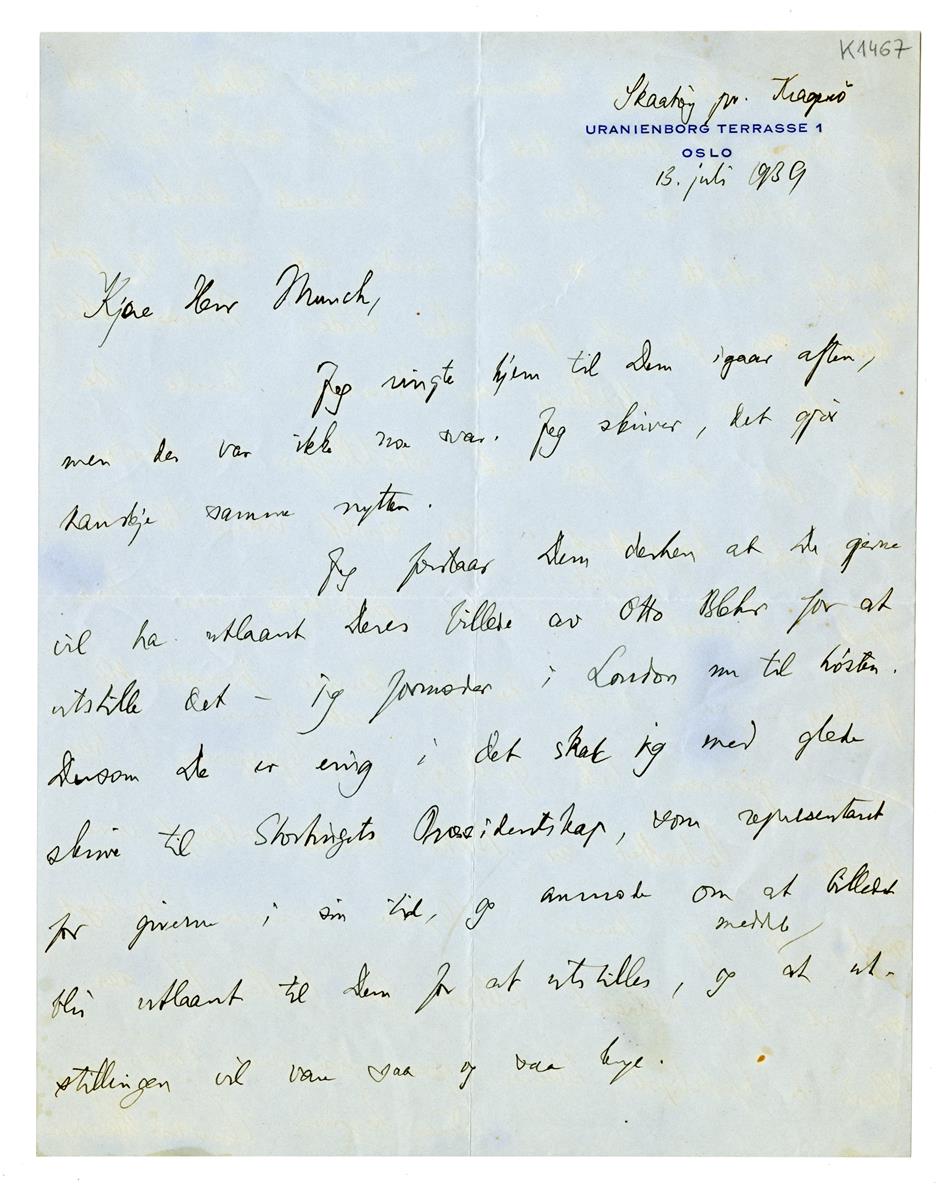 K1467
Skaatöy pr. Kragerö
URANIENBORG TERRASSE 1
OSLO
13. juli 1939
Kjære Herr Munch,
Jeg ringte hjem til Dem igaar aften,
men der var ikke noe svar. Jeg skriver, det gjör
kanskje samme nytten.
Jeg forstaar Dem derhen at De gjerne
vil ha utlaant Deres billede av Otto Blehr for at
utstille det – jeg formoder i London nu til hösten.
Dersom De er enig i det skal jeg med glede
skrive til Stortingets Præsidentskap, som representant
for giverne i sin tid, og anmode om at billedet
meddele
bli utlaant til Dem for at utstilles, og at ut-
stillingen vil vare saa og saa lenge.